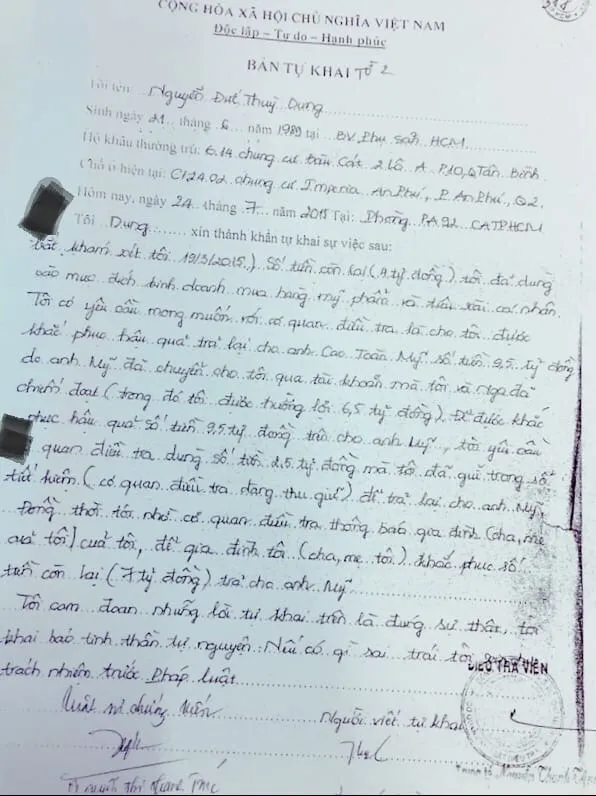 CỘNG HÒA XÃ HỘI CHỦ NGHĨA VIỆT NAM
Độc lập – Tự do – Hạnh phúc
BẢN TỰ KHAI TỜ 2
Tôi tên: Nguyễn Đức Thuỳ Dung
Sinh ngày 21 tháng 6 năm 1989 tại BV. Phụ sản HCM
Hộ khẩu thường trú: 6.14 chung cư Bàu Cát 2 Lô A P.10, Q Tân Bình
Chỗ ở hiện tại: C1 24.02 chung cư Imperia An Phú, P. An Phú, Q2
Hôm nay, ngày 24 tháng 7 năm 2015 Tại: Phòng PA92 CATPHCM
Tôi Dung xin thành khẩn tự khai sự việc sau:
bắt khám xét tôi 19/3/2015.) Số tiền còn lại (4 tỷ đồng) tôi đã dùng
vào mục đích kinh doanh mua hàng mỹ phẩm và tiêu xài cá nhân.
Tôi có yêu cầu mong muốn với cơ quan điều tra là cho tôi được
khắc phục hậu quả trả lại cho anh Cao Toàn Mỹ số tiền 9,5 tỷ đồng
do anh Mỹ đã chuyển cho tôi qua tài khoản mà tôi và Nga đã
chiếm đoạt (trong đó tôi được hưởng lợi 6,5 tỷ đồng). Để được khắc
phục hậu quả số tiền 9,5 tỷ đồng trả cho anh Mỹ, tôi yêu cầu
quan điều tra dùng số tiền 2,5 tỷ đồng mà tôi đã gửi trong sổ
tiết kiệm (cơ quan điều tra đang thu giữ) để trả lại cho anh Mỹ.
Đồng thời tôi nhờ cơ quan điều tra thông báo gia đình (cha, mẹ
của tôi) của tôi, để gia đình tôi (cha, mẹ tôi) khắc phục số
tiền còn lại (7 tỷ đồng) trả cho anh Mỹ.
Tôi cam đoan những lời tự khai trên là đúng sự thật, tôi
khai báo tinh thần tự nguyện. Nếu có gì sai trái tôi
trách nhiệm trước Pháp luật.
ĐIỀU TRA VIÊN
Luật sư chứng kiến
Người viết tự khai